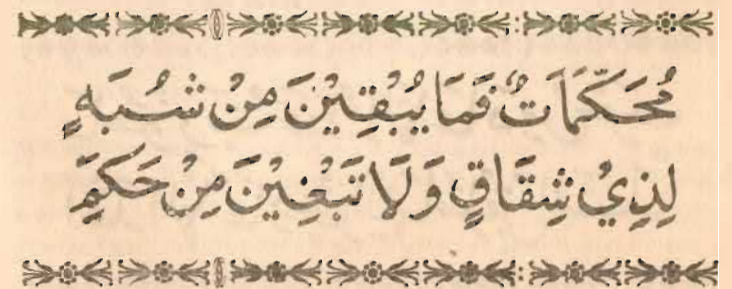 مُحَكَّمَاتٌ فَمَا يُبْقِيْنَ مِنْ شُبَهٍ
لِذِيْ شِقَاقٍ وَلَا تَبْغِيْنَ مِنْ حَكَمِ